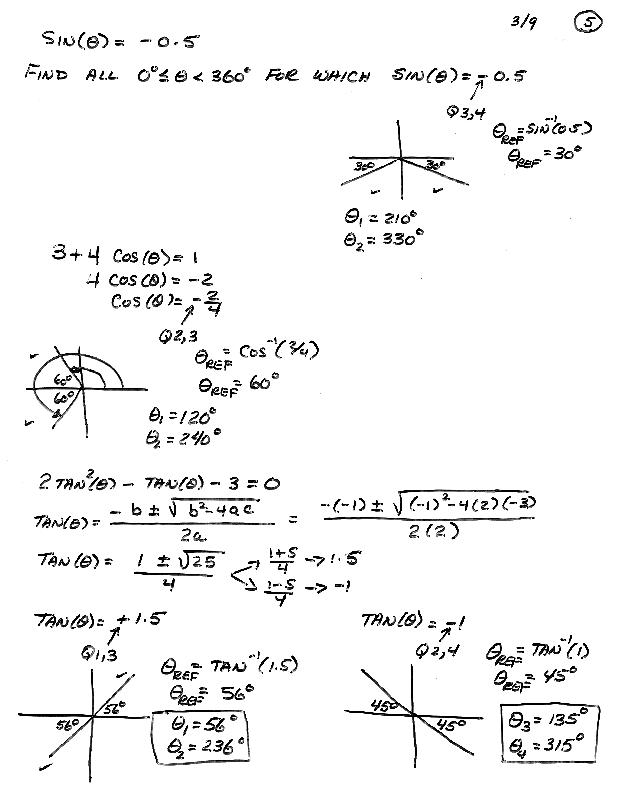 3/9 ⑤
SIN(θ) = -0.5
FIND ALL 0° ≤ θ < 360° FOR WHICH SIN(θ) = -0.5
Q3,4
θREF = SIN⁻¹(0.5)
θREF = 30°
30° 30°
θ₁ = 210°
θ₂ = 330°
3 + 4 COS(θ) = 1
4 COS(θ) = -2
COS(θ) = -2/4
Q2,3
θREF = COS⁻¹(2/4)
θREF = 60°
60°
60°
θ₁ = 120°
θ₂ = 240°
2 TAN²(θ) - TAN(θ) - 3 = 0
TAN(θ) = (-b ± √(b²-4ac))/2a = (-(-1) ± √((-1)²-4(2)(-3)))/2(2)
TAN(θ) = (1 ± √25)/4 → (1+5)/4 → 1.5
→ (1-5)/4 → -1
TAN(θ) = +1.5
Q1,3
θREF = TAN⁻¹(1.5)
θREF = 56°
56° 56°
θ₁ = 56°
θ₂ = 236°
TAN(θ) = -1
Q2,4
θREF = TAN⁻¹(1)
θREF = 45°
45° 45°
θ₃ = 135°
θ₄ = 315°